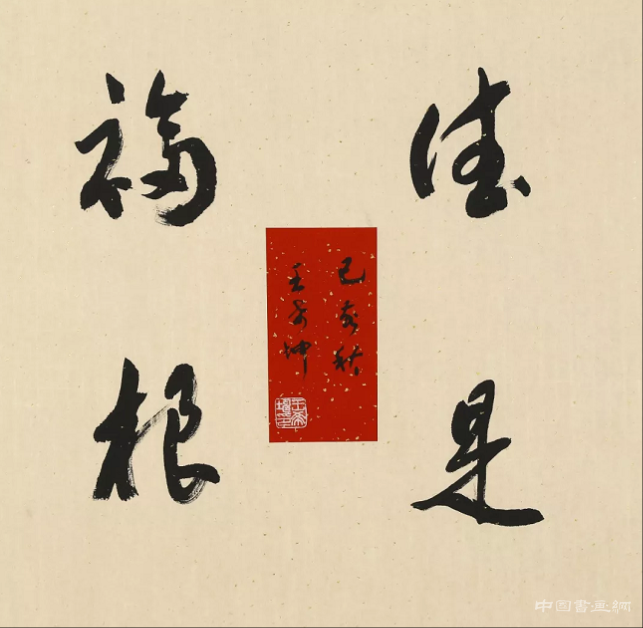 德是
福根
己亥秋
王希坤
中国書画網